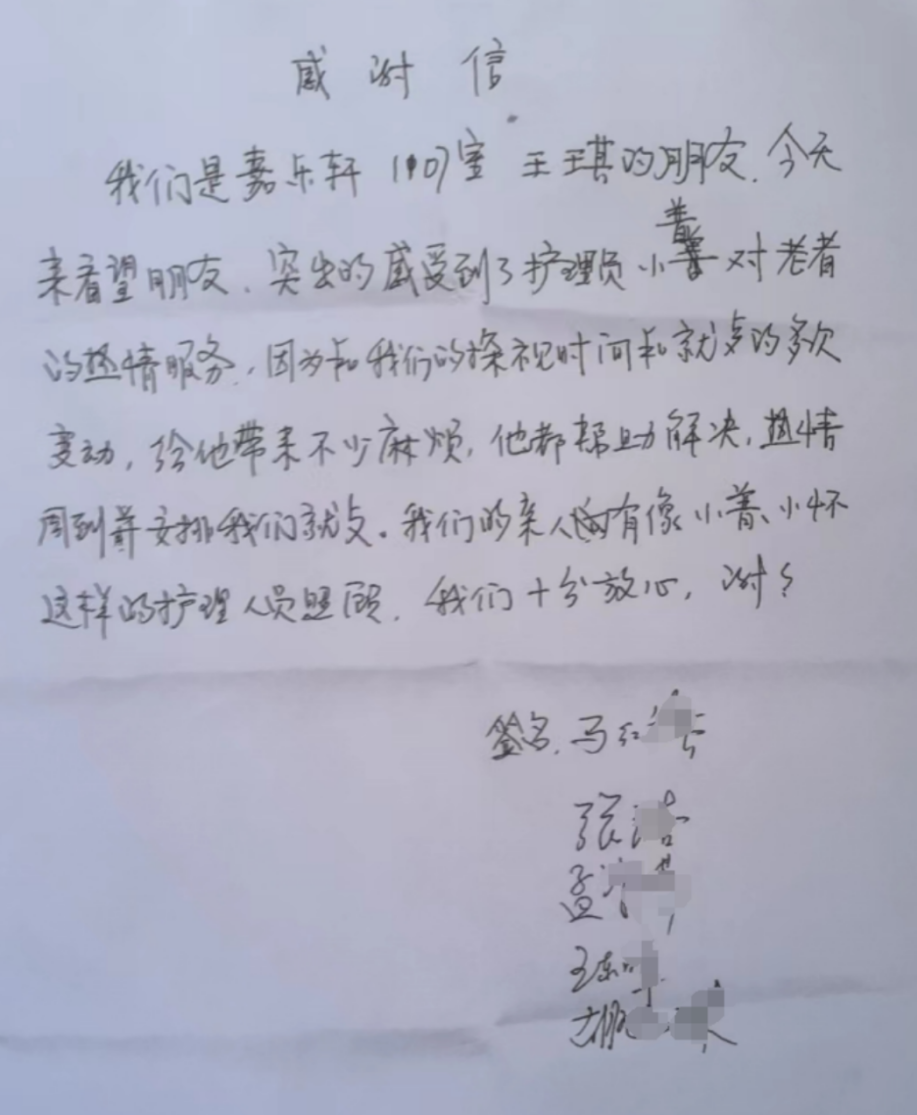 感谢信
我们是嘉乐轩1107室 王琪的朋友.今天
来看望朋友.突出的感受到了护理员小普对老者
的热情服务.因为和我们的探视时间和就歺的多次
变动,给他带来不少麻烦,他都帮助解决,热情
周到并安排我们就歺。我们的亲人有像小普、小怀
这样的护理人员照顾.我们十分放心,谢谢
签名.马红
张
孟
王东
胡